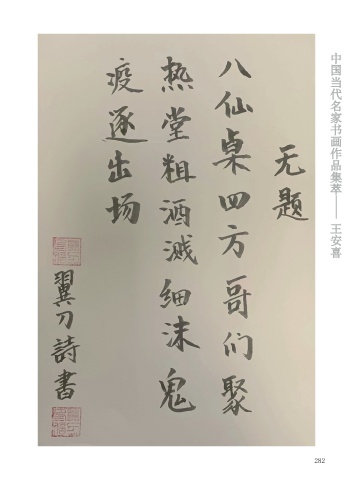 无题
八仙桌四方哥们聚
热堂粗酒溅细沫鬼
疫逐出场
翼刀詩書
中国当代名家书画作品集萃——王安喜
282